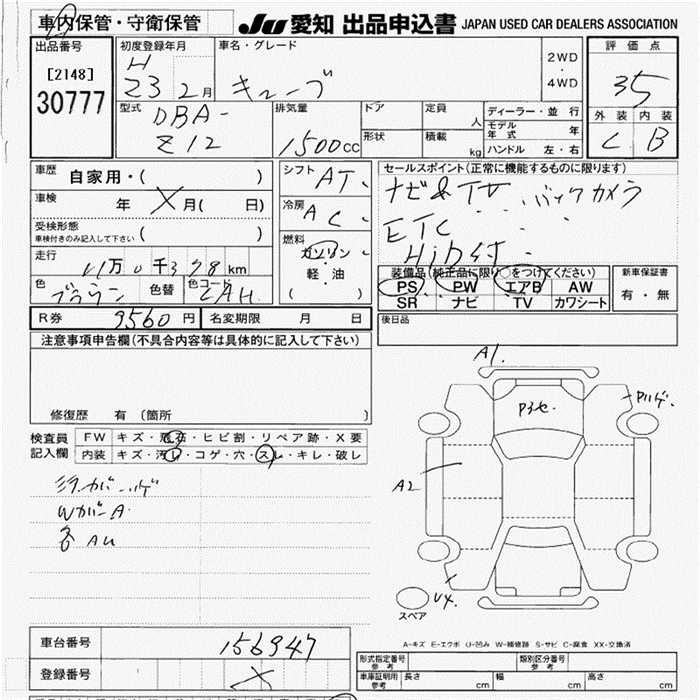 車内保管・守衛保管
JU 愛知 出品申込書 JAPAN USED CAR DEALERS ASSOCIATION
出品番号
[2148]
30777
初度登録年月
H
23 2月
車名・グレード
キューブ
2WD
・
4WD
評価点
35
外装 内装
C B
型式
DBA-
Z12
排気量
1500cc
ドア
形状
定員 人
積載 kg
ディーラー・並行
モデル年式 年
ハンドル 左・右
車歴 自家用・( )
車検 年 X月( 日)
受検形態
車検付きのみ記入して下さい ( )
走行 11万0千378km
色 ブラウン 色替 色コード CAH
シフト AT
冷房 AC
燃料
ガソリン
軽・油
( )
セールスポイント(正常に機能するものに限ります)
ナビ&TV バックカメラ
ETC
HiD付
装備品(純正品に限り○をつけてください)
PS PW エアB AW
SR ナビ TV カワシート
新車保証書
有・無
後日品
R券 9560円 名変期限 月 日
注意事項申告欄(不具合内容等は具体的に記入して下さい)
修復歴 有 (箇所 )
検査員
記入欄
FW キズ・飛石・ヒビ割・リペア跡・X要
内装 キズ・汚レ・コゲ・穴・スレ・キレ・破レ
ミラーカバーハゲ
WカバーA
各AU
A1.
Pハゲ.
A2
U4.
スペア
A-キズ E-エクボ U-凹み W-補修跡 S-サビ C-腐食 XX-交換済
車台番号 156947
登録番号 X
形式指定番号
参考
類別区分番号
参考
車庫証明用
参考
長さ cm 幅 cm 高さ cm